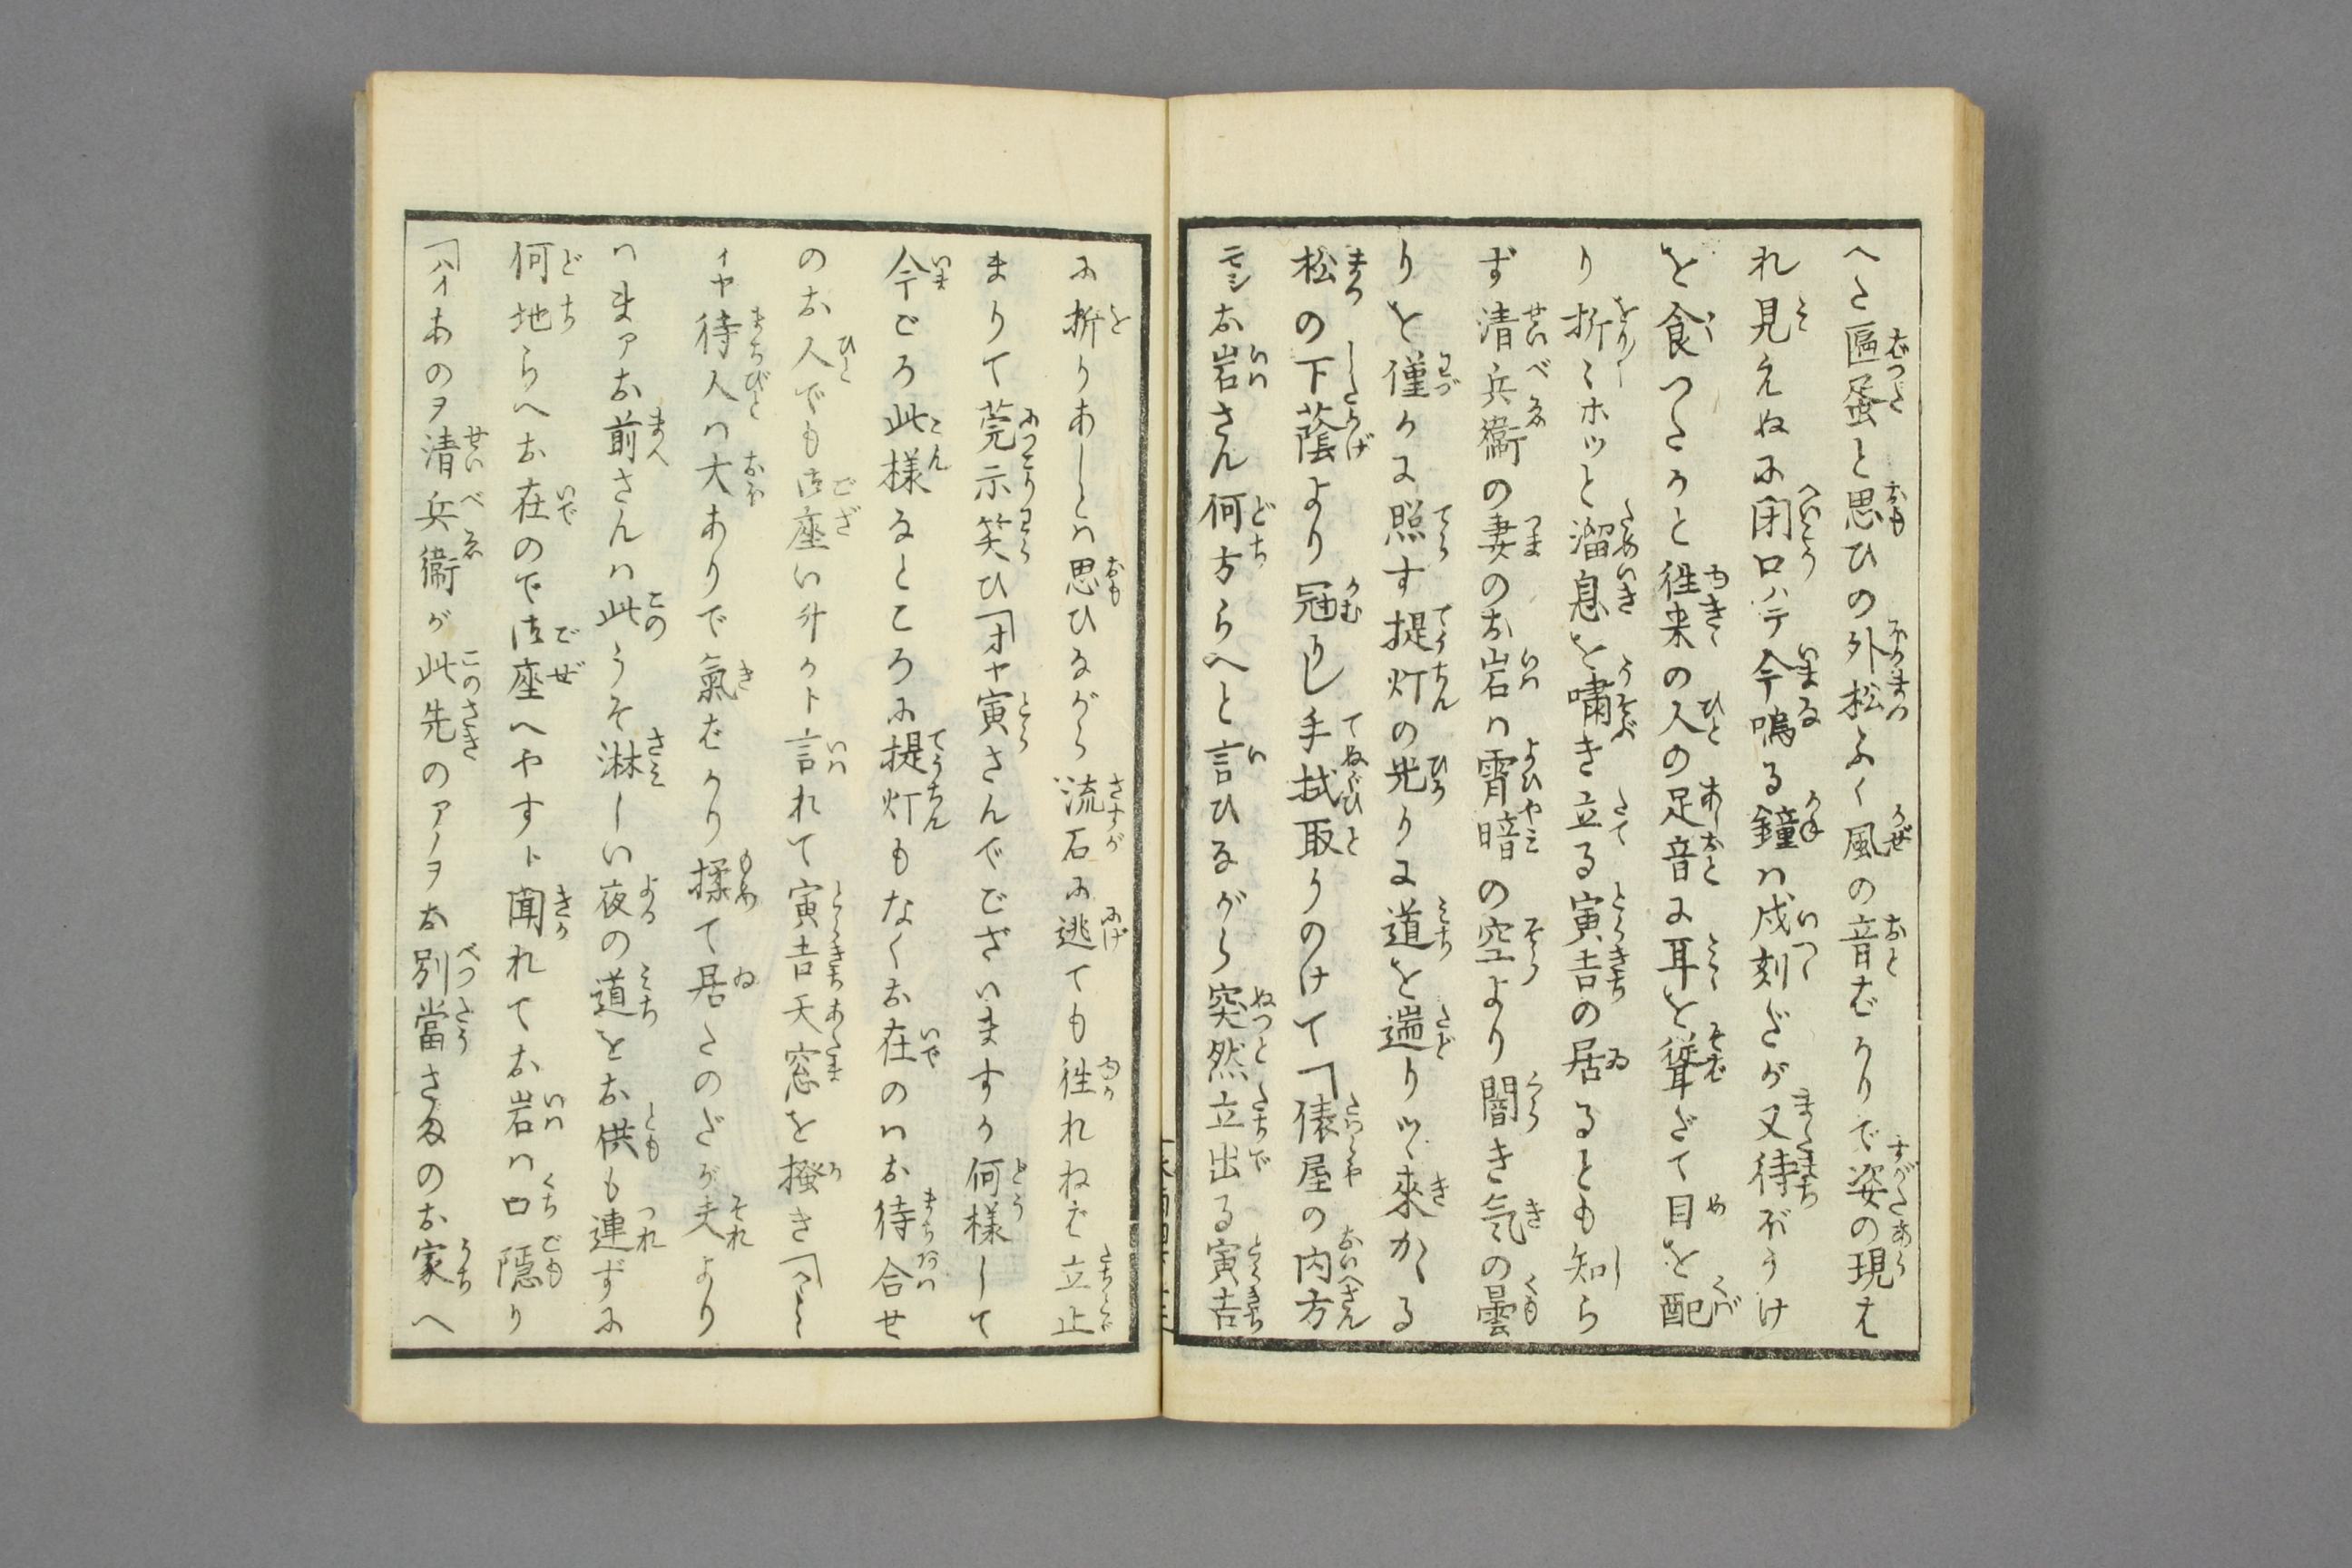 へた蝠蛋と思ひの外松ふく風の音ばかりで姿の現え
れ見えぬに閉口ハテ今鳴る鐘ハ戌刻だが又待ぼうけ
を食つたかと徃来の人の足音に耳を聳だて目を配
り折々ホッと溜息を嘯き立る寅吉の居るとも知ら
ず清兵衞の妻のお岩ハ霄暗の空より闇き気の曇
りを僅かに照す提灯の光りに道を遄りツヽ來かゝる
松の下蔭より冠りし手拭取りのけて「俵屋の内方
モシお岩さん何方らへと言ひながら突然立出る寅吉
に折りあしとハ思ひながら流石に逃ても徃れねば立止
まりて莞示笑ひ「オヤ寅さんでございますか何様して
今ごろ此様なところに提灯もなくお在のハお待合せ
のお人でも御座い升かト言れて寅吉天窓を掻き「ヘヽヽ
イヤ待人ハ大ありで氣ばかり揉て居たのだが夫より
ハまアお前さんハ此うそ淋しい夜の道をお供も連ずに
何地らへお在ので御座へやすト聞れてお岩ハ口隠り
「ハイあのヲ清兵衞が此先のアノヲお別當さまのお家へ